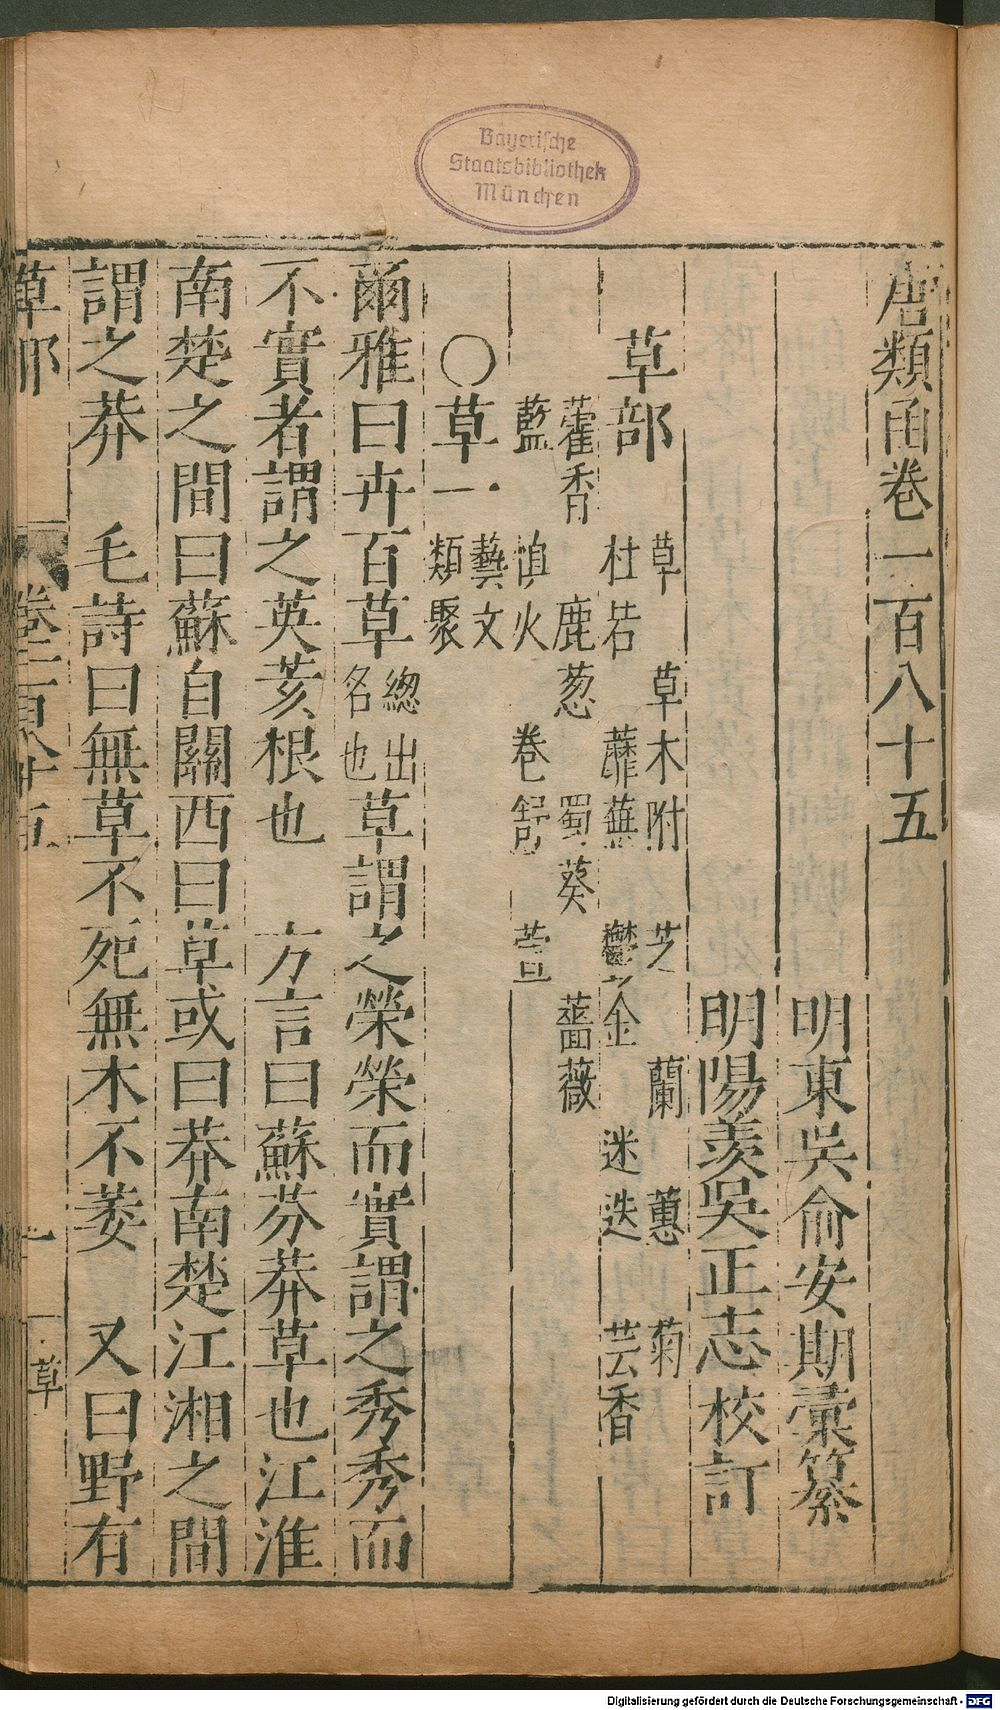 Bayerische
Staatsbibliothek
München
唐類函卷一百八十五
明東吳俞安期彙纂
明陽羨吳正志校訂
草部
草 草木附 芝 蘭 蕙 菊
杜若 蘼蕪 鬱金 迷迭 芸香
藿香 鹿葱 蜀葵 薔薇
藍 慎火 卷舒 萱
○草一 藝文類聚
爾雅曰卉百草總名出也草謂之榮榮而實謂之秀秀而
不實者謂之英荄根也 方言曰蘇芬莽草也江淮
南楚之間曰蘇自關西曰草或曰莽南楚江湘之間
謂之莽 毛詩曰無草不死無木不萎 又曰野有
草部 卷一百八十五 一 草
Digitalisierung gefördert durch die Deutsche Forschungsgemeinschaft - DFG